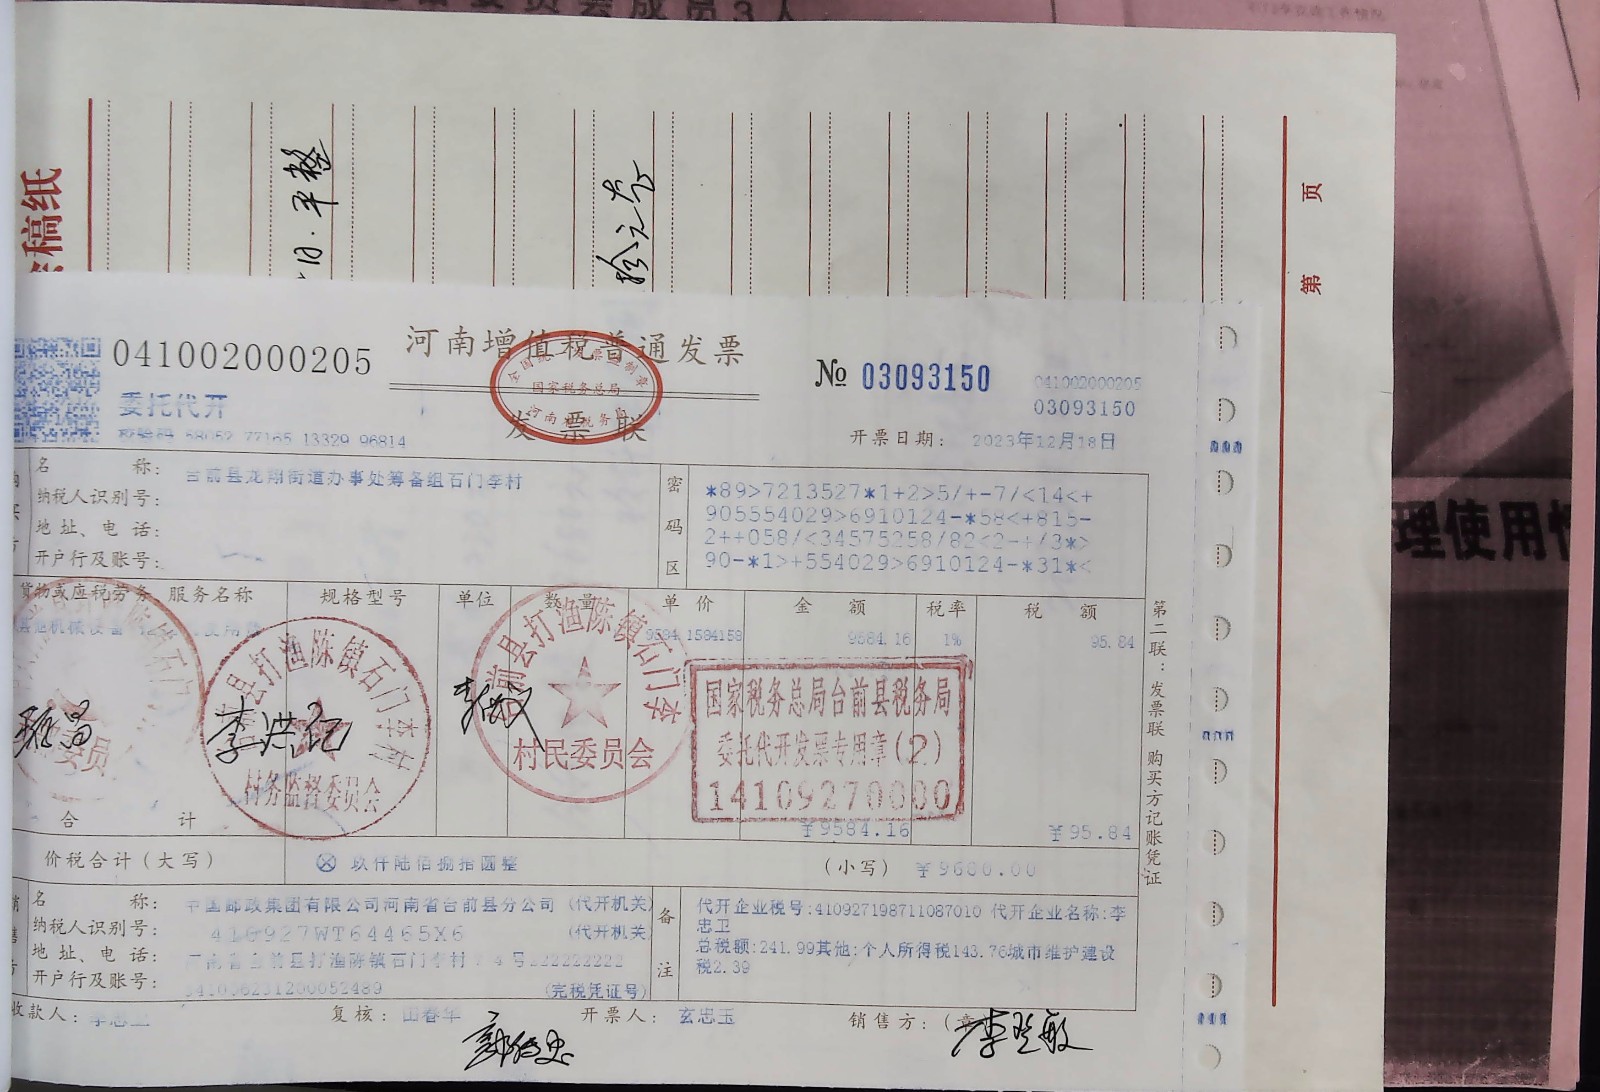 会成员3人
稿纸
日.平整
拾元整
第 页
理使用
041002000205
河南增值税普通发票
发票联
全国统一发票监制章
国家税务总局
河南省税务局
№ 03093150
041002000205
03093150
委托代开
校验码 68052 77165 13329 96814
开票日期: 2023年12月18日
名 称: 台前县龙翔街道办事处筹备组石门李村
纳税人识别号:
地址、电话:
开户行及账号:
密码区
*89>7213527*1+2>5/+-7/<14<+
905554029>6910124-*58<+815-
2++058/<34575258/82<2-+/3*>
90-*1>+554029>6910124-*31*<
货物或应税劳务、服务名称 规格型号 单位 数量 单价 金额 税率 税额
9584.1584158 9584.16 1% 95.84
县打渔陈镇石门李村
村务监督委员会
李洪记
前县打渔陈镇石门李
村民委员会
国家税务总局台前县税务局
委托代开发票专用章(2)
14109270000
合 计 ¥9584.16 ¥95.84
价税合计(大写) ⊗ 玖仟陆佰捌拾圆整 (小写) ¥9680.00
名 称: 中国邮政集团有限公司河南省台前县分公司 (代开机关)
纳税人识别号: 410927WT64465X6 (代开机关)
地址、电话: 河南省台前县打渔陈镇石门李村 4号222222222
开户行及账号: 341036231200052489 (完税凭证号)
备注
代开企业税号:410927198711087010 代开企业名称:李
忠卫
总税额:241.99其他:个人所得税143.76城市维护建设
税2.39
收款人: 李忠卫 复核: 田春华 开票人: 玄忠玉 销售方:(章
第二联:发票联 购买方记账凭证